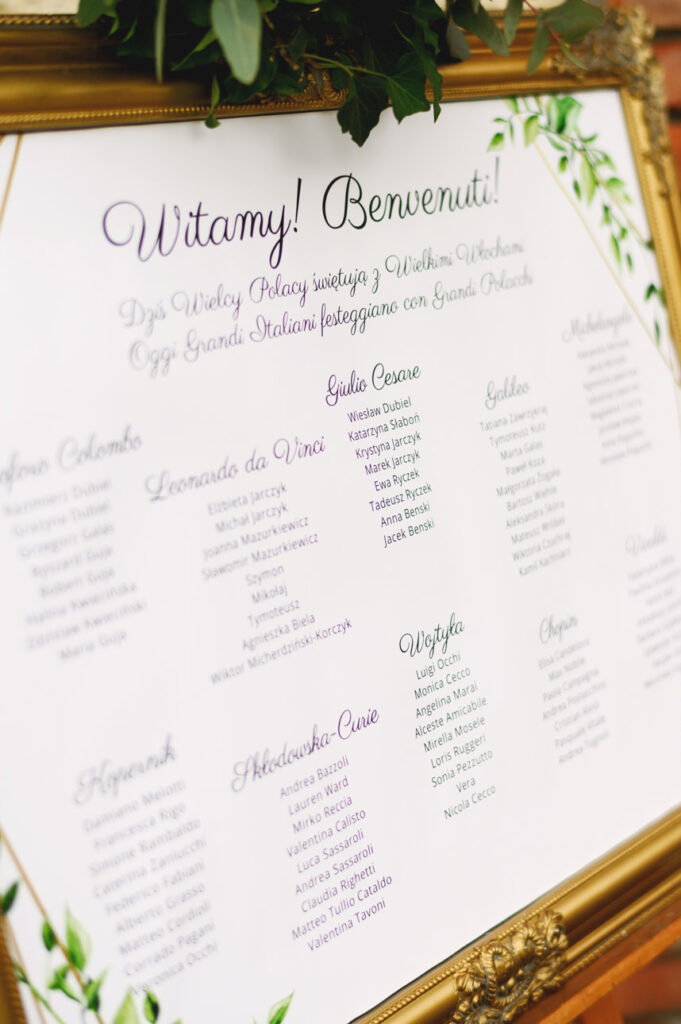 Witamy! Benvenuti!
Dziś Wielcy Polacy świętują z Wielkimi Włochami
Oggi Grandi Italiani festeggiano con Grandi Polacchi
Colombo
Kazimierz Dubiel
Grażyna Dubiel
Grzegorz Galas
Ryszard Guja
Robert Guja
Halina Kwecińska
Zdzisław Kweciński
Maria Guja
Leonardo da Vinci
Elżbieta Jarczyk
Michał Jarczyk
Joanna Mazurkiewicz
Sławomir Mazurkiewicz
Szymon
Mikołaj
Tymoteusz
Agnieszka Biela
Wiktor Micherdziński-Korczyk
Giulio Cesare
Wiesław Dubiel
Katarzyna Słaboń
Krystyna Jarczyk
Marek Jarczyk
Ewa Ryczek
Tadeusz Ryczek
Anna Benski
Jacek Benski
Galileo
Tatiana Zawrzykraj
Tymoteusz Kutz
Marta Galas
Paweł Koza
Małgorzata Zogała
Bartosz Wielne
Aleksandra Skóra
Mateusz Wróbel
Wiktoria Czuchraj
Kamil Kachniarz
Michelangelo
Kopernik
Damiano Meloti
Francesca Rigo
Simone Rambaldo
Caterina Zanlucchi
Federico Fabiani
Alberto Grasso
Matteo Cordioli
Corrado Pagani
Veronica Occhi
Skłodowska-Curie
Andrea Bazzoli
Lauren Ward
Mirko Reccia
Valentina Calisto
Luca Sassaroli
Andrea Sassaroli
Claudia Righetti
Matteo Tullio Cataldo
Valentina Tavoni
Wojtyła
Luigi Occhi
Monica Cecco
Angelina Marai
Alceste Amicabile
Mirella Mosele
Loris Ruggeri
Sonia Pezzutto
Vera
Nicola Cecco
Chopin
Elisa
Max Nobile
Paola Campagna
Andrea
Cristian
Pasquale
Andrea
Vivaldi